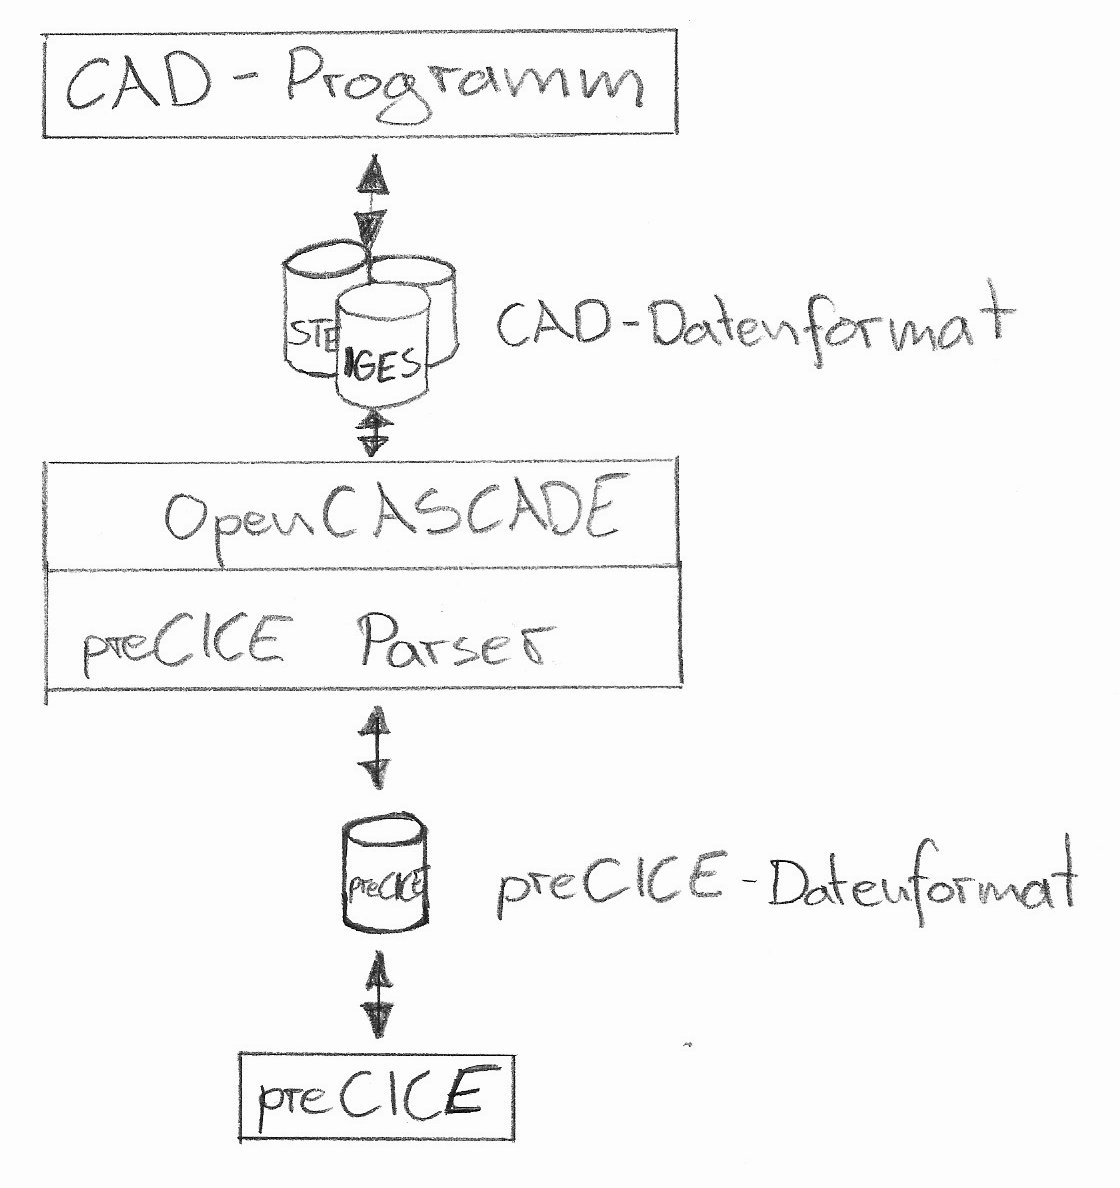 CAD - Programm
STE
IGES
CAD-Datenformat
OpenCASCADE
preCICE Parser
preCICE
preCICE - Datenformat
preCICE